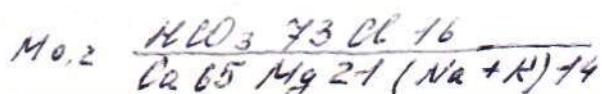 M0,2 HCO3 73 Cl 16
Ca 65 Mg 21 (Na + K) 14